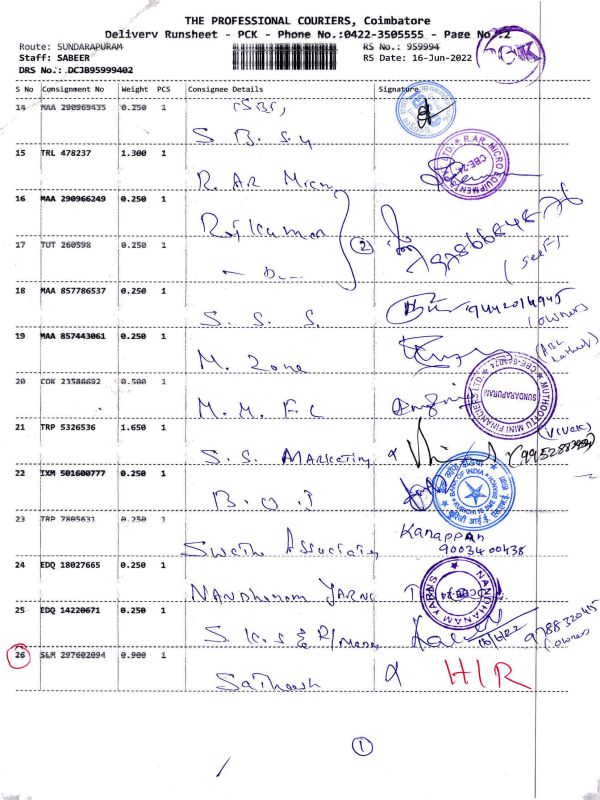 THE PROFESSIONAL COURIERS, Coimbatore
Delivery Runsheet - PCK - Phone No.:0422-3505555 - Page No.:2
Route: SUNDARAPURAM RS No.: 959994
Staff: SABEER RS Date: 16-Jun-2022
DRS No.: DCJB95999402
PCK
S No Consignment No Weight PCS Consignee Details Signature
14 MAA 290969435 0.250 1
S. B. S. Y
15 TRL 478237 1.300 1
R. AR Micro
R.AR. MICRO EQUIPMENTS CBE-24
16 MAA 290966249 0.250 1
Rajkumar
17 TUT 260598 0.250 1
2
(self)
18 MAA 857786537 0.250 1
S. S. S.
9442014945
(owners
19 MAA 857443061 0.250 1
M. Zone
20 COK 23586692 0.500 1
M. M. F. L
MUTHOOTTU MINI FINANCIERS CBE-641024
SUNDARAPURAM
21 TRP 5326536 1.650 1
S. S. Marketing
(VIVEK)
22 IXM 501600777 0.250 1
B. O. I
BANK OF INDIA
23 TRP 7805631 0.250 1
Swathi Associates
Kanappan
9003400438
24 EDQ 18027665 0.250 1
Nandhanam YARNS
NANDHANAM YARNS
25 EDQ 14220671 0.250 1
9788332045
(owners
26 SLM 297602094 0.900 1
Satheesh
HIR
1